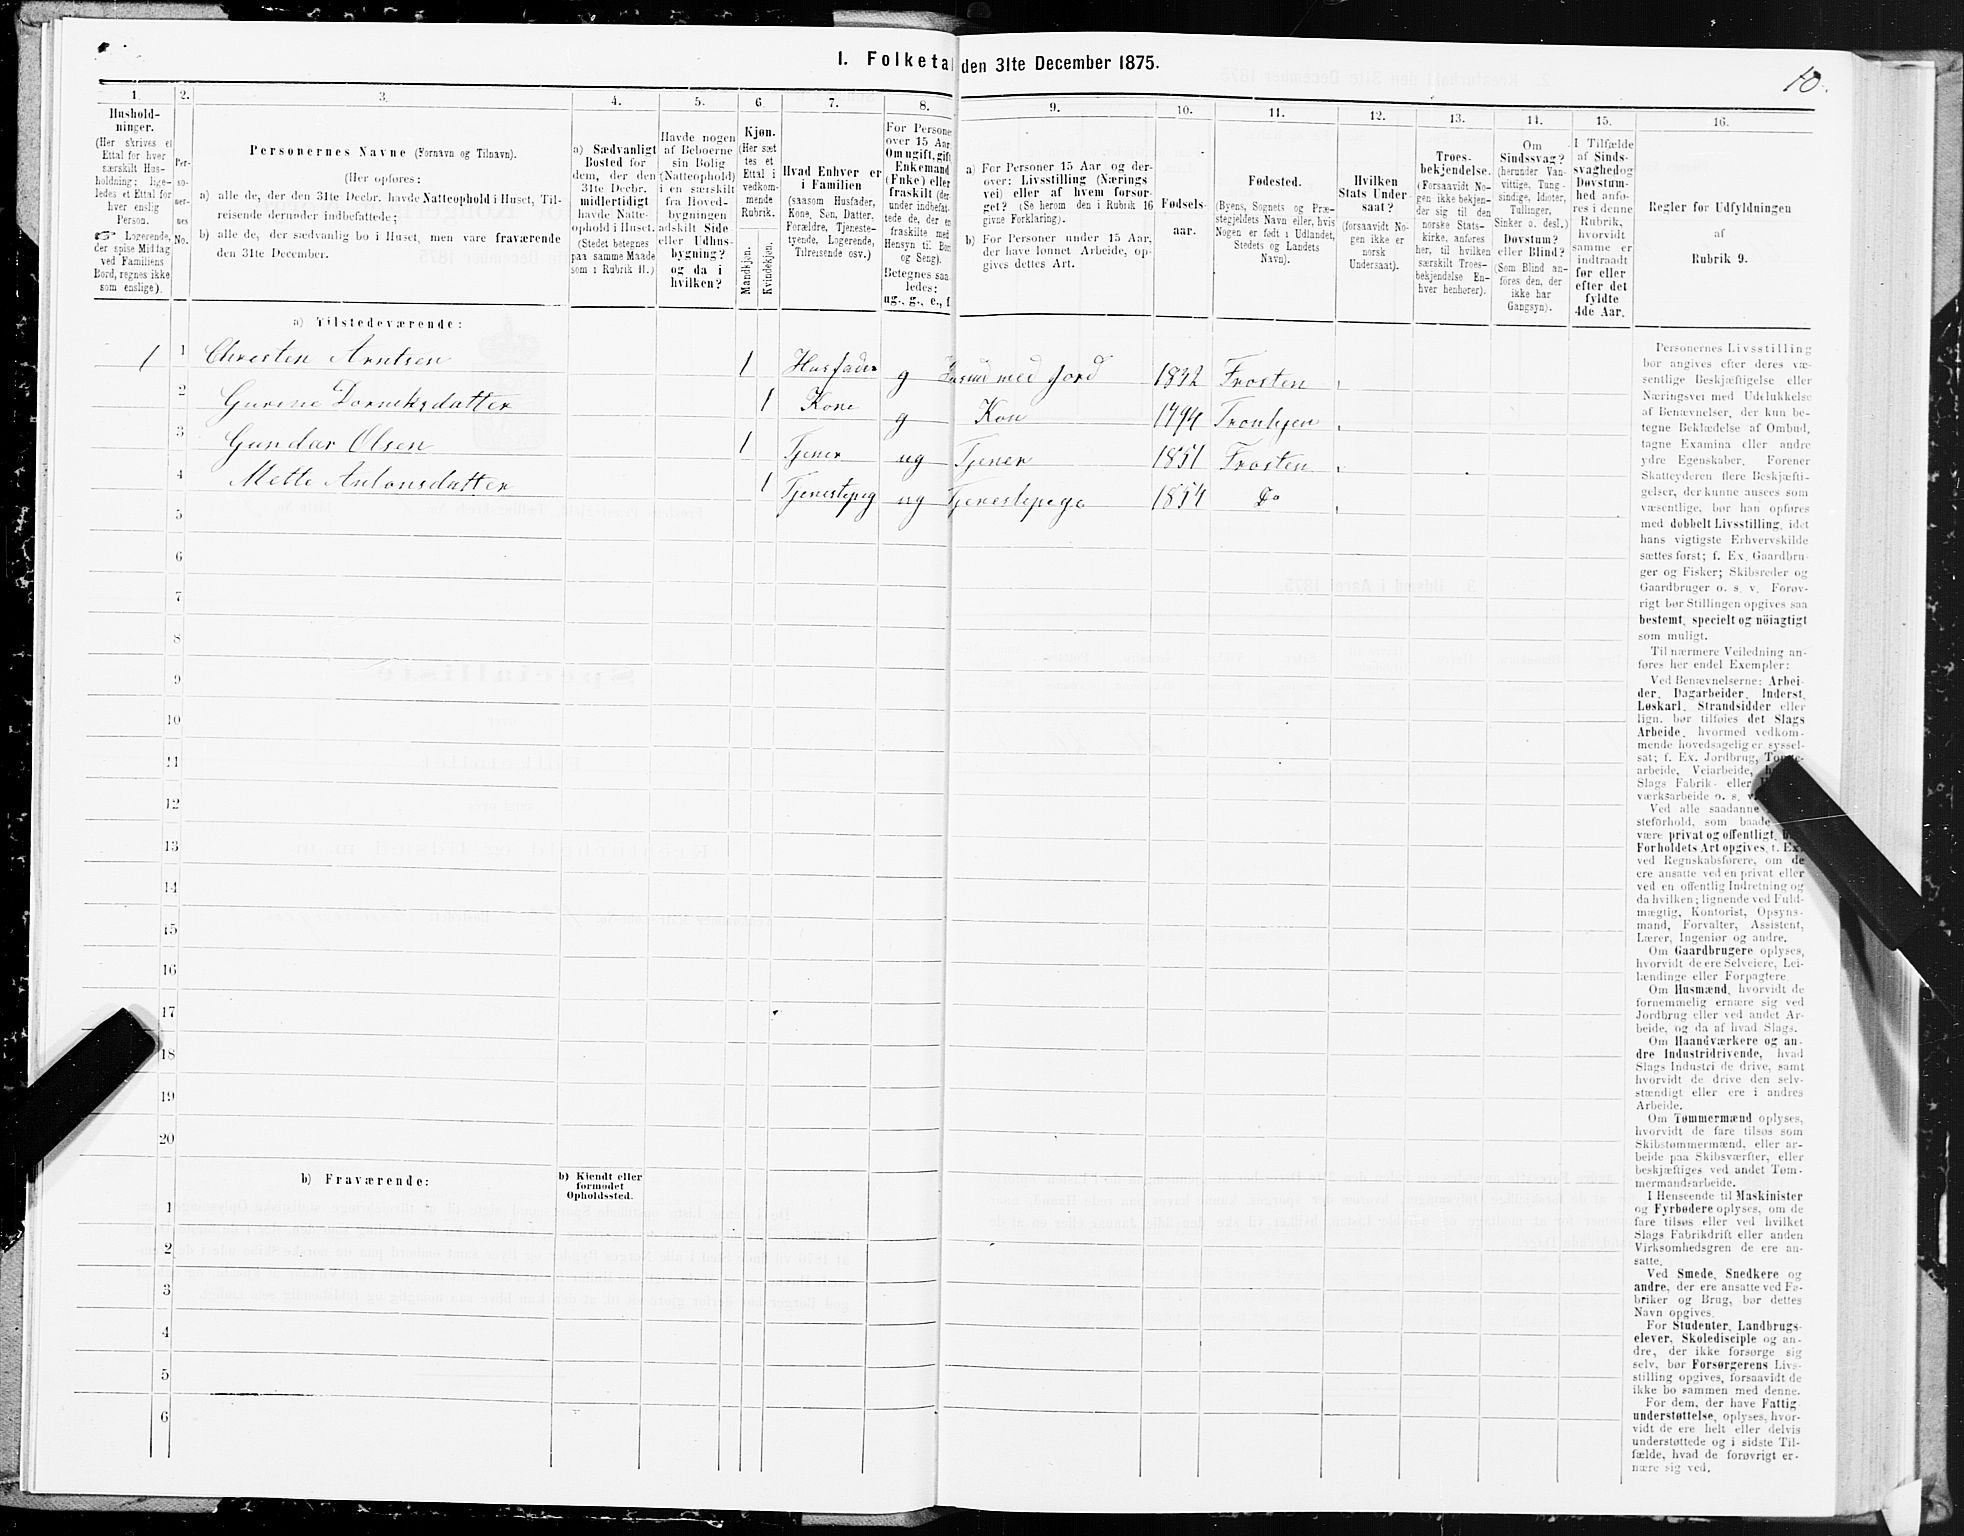 I. Folketal den 31te December 1875.
10.
1. 2. 3. 4. 5. 6. 7. 8. 9. 10. 11. 12. 13. 14. 15. 16.
Hushold-
ninger.
(Her skrives et
Ettal for hver
særskilt Hus-
holdning; lige-
ledes et Ettal for
hver enslig
Person.
☞ Logerende,
der spise Middag
ved Familiens
Bord, regnes ikke
som enslige).
Per-
so-
ner-
nes
No.
Personernes Navne (Fornavn og Tilnavn).
(Her opføres:
a) alle de, der den 31te Decbr. havde Natteophold i Huset, Til-
reisende derunder indbefattede;
b) alle de, der sædvanlig bo i Huset, men vare fraværende
den 31te December.
a) Sædvanligt
Bosted for
dem, der den
31te Decbr.
midlertidigt
havde Natte-
ophold i Huset.
(Stedet betegnes
paa samme Maade
som i Rubrik 11.)
Havde nogen
af Beboerne
sin Bolig
(Natteophold)
i en særskilt
fra Hoved-
bygningen
adskilt Side-
eller Udhus-
bygning?
og da i
hvilken?
Kjøn.
(Her sæt
tes et
Ettal i
vedkom-
mende
Rubrik.
Mandkjøn.
Kvindekjøn.
Hvad Enhver er
i Familien
(saasom Husfader,
Kone, Søn, Datter,
Forældre, Tjeneste-
tyende, Logerende,
Tilreisende osv.)
For Persone
over 15 Aar
Om ugift, gift
Enkemand
(Enke) eller
fraskilt (der
under indbefat-
tede de, der er
fraskilte med
Hensyn til Bor
og Seng).
Betegnes saa
ledes:
ug., g., e., f.
a) For Personer 15 Aar og der-
over: Livsstilling (Nærings
vei) eller af hvem forsør-
get? (Se herom den i Rubrik 16
givne Forklaring).
b) For Personer under 15 Aar,
der have lønnet Arbeide, op-
gives dettes Art.
Fødsels-
aar.
Fødested.
(Byens, Sognets og Præ-
stegjeldets Navn eller, hvis
Nogen er født i Udlandet,
Stedets og Landets
Navn).
Hvilken
Stats Under
saat?
(forsaavidt No-
gen ikke er
norsk
Undersaat).
Troes-
bekjendelse.
(Forsaavidt No-
gen ikke bekjen-
der sig til den
norske Stats-
kirke, anføres
her, til hvilken
særskilt Troes-
bekjendelse En-
hver henhører).
Om
Sindssvag?
(herunder Van-
vittige, Tung-
sindige, Idioter,
Tullinger,
Sinker o. desl.)
Døvstum?
eller Blind?
(Som Blind an-
føres den, der
ikke har
Gangsyn).
I Tilfælde
af Sinds-
svaghed og
Døvstum-
hed anfø-
res i denne
Rubrik,
hvorvidt
samme er
indtraadt
før eller
efter det
fyldte
4de Aar.
Regler for Udfyldningen
af
Rubrik 9.
a) Tilstedeværende:
1 1 Christen Arntsen 1 Husfader g med Jord 1832 Frosten
2 1 Kone g Kone 1794 Tronhjem
3 Gundar Olsen 1 Tjener ug Tjener 1851 Frosten
4 Mette Antonsdatter 1 Tjenestepig ug Tjenestepige 1854 Do
5
6
7
8
9
10
11
12
13
14
15
16
17
18
19
20
b) Fraværende:
b) Kiendt eller
formodet
Opholdssted.
1
2
3
4
5
6
Personernes Livsstilling
bør angives efter deres væ-
sentlige Beskjæftigelse eller
Næringsvei med Udelukkelse
af Benævnelser, der kun be-
tegne Beklædelse af Ombud,
tagne Examina eller andre
ydre Egenskaber. Forener
Skatteyderen flere Beskjæfti-
gelser, der kunne ansees som
væsentlige, bør han opføres
med dobbelt Livsstilling, idet
hans vigtigste Erhvervskilde
sættes først; f. Ex. Gaardbru-
ger og Fisker; Skibsreder og
Gaardbruger o. s. v. Forøv-
rigt bør Stillingen opgives saa
bestemt, specielt og nöiagtigt
som muligt.
Til nærmere Veiledning an-
føres her endel Exempler:
Ved Benævnelserne: Arbei-
der, Dagarbeider, Inderst,
Løskarl, Strandsidder eller
lign. bør tilføies det Slags
Arbeide, hvormed vedkom-
mende hovedsagelig er syssel-
sat; f. Ex. Jordbrug,
arbeide, Veiarbeide,
Slags Fabrik- eller
værksarbeide o. s. v.
Ved alle saadanne
steforhold, som baade
være privat og offentligt,
Forholdets Art opgives, f. Ex.
ved Regnskabsførere, om de
ere ansatte ved en privat eller
ved en offentlig Indretning og
da hvilken; lignende ved Fuld-
mægtig, Kontorist, Opsyns-
mand, Forvalter, Assistent,
Lærer, Ingeniør og andre.
Om Gaardbrugere oplyses,
hvorvidt de ere Selveiere, Lei-
lændinge eller Forpagtere
Om Husmænd, hvorvidt de
fornemmelig ernære sig ved
Jordbrug eller ved andet Ar-
beide, og da af hvad Slags.
Om Haandværkere og an-
dre Industridrivende, hvad
Slags Industri de drive, samt
hvorvidt de drive den selv-
stændigt eller ere i andres
Arbeide.
Om Tømmermænd oplyses,
hvorvidt de fare tilsøs som
Skibstømmermænd, eller ar-
beide paa Skibsværfter, eller
beskjæftiges ved andet Tøm-
mermandsarbeide.
I Henseende til Maskinister
og Fyrbødere oplyses, om de
fare tilsøs eller ved hvilket
Slags Fabrikdrift eller anden
Virksomhedsgren de ere an-
satte.
Ved Smede, Snedkere og
andre, der ere ansatte ved Fa-
briker og Brug, bør dettes
Navn opgives.
For Studenter, Landbrugs-
elever, Skoledisciple og an-
dre, der ikke forsørge sig
selv, bør Forsørgerens Livs-
stilling opgives, forsaavidt de
ikke bo sammen med denne.
For dem, der have Fattig-
understøttelse, oplyses, hvor-
vidt de ere helt eller delvis
understøttede og i sidste Til-
fælde, hvad de forøvrigt er-
nære sig ved.